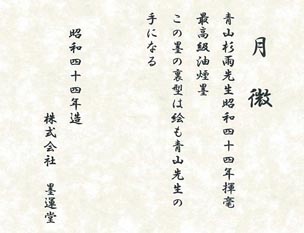 月微
青山杉雨先生昭和四十四年揮毫
最高級油煙墨
この墨の裏型は絵も青山先生の
手になる
昭和四十四年造
株式会社 墨運堂